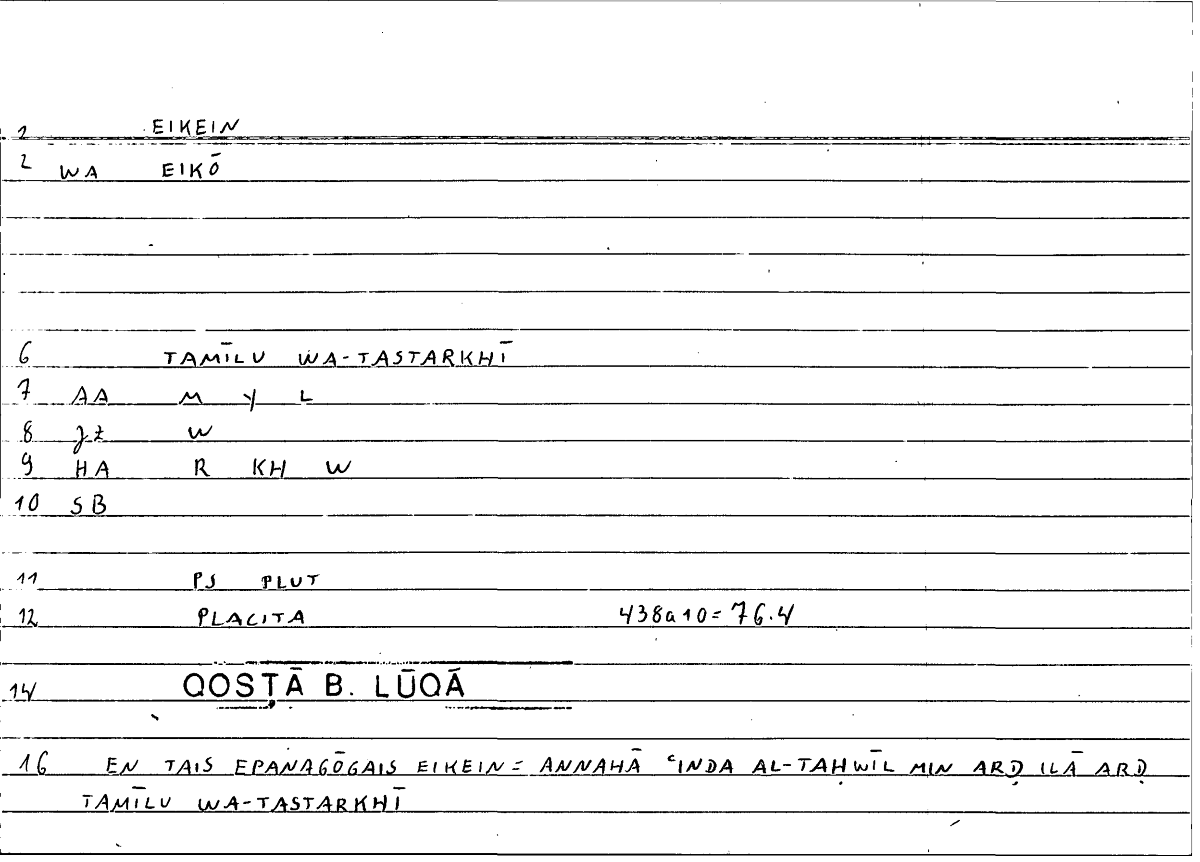 1 EIKEIN
2 WA EIKŌ
6 TAMĪLU WA-TASTARKHĪ
7 AA M Y L
8 JZ W
9 HA R KH W
10 SB
11 PS PLUT
12 PLACITA 438a10=76.4
14 QOSṬĀ B. LŪQĀ
16 EN TAIS EPANAGŌGAIS EIKEIN = ANNAHĀ ʿINDA AL-TAḤWĪL MIN ARḌ ILĀ ARḌ
TAMĪLU WA-TASTARKHĪ